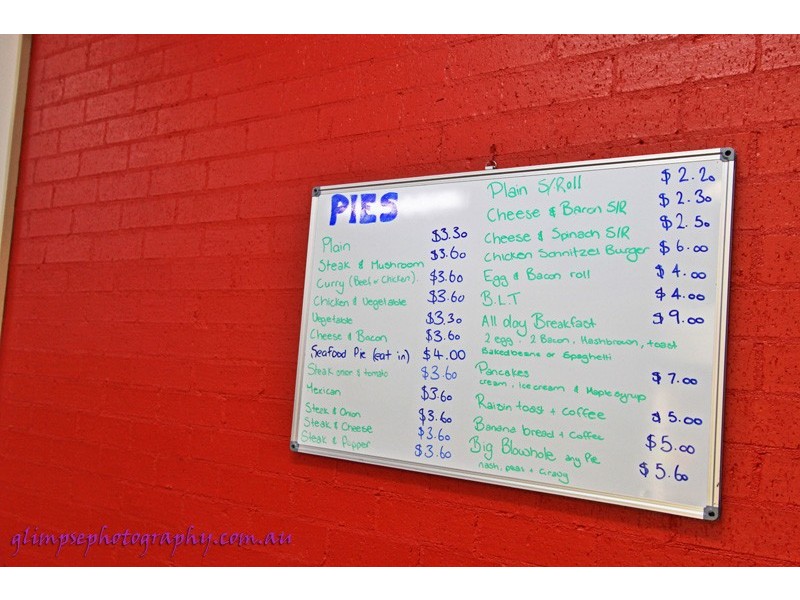 PIES
Plain $3.30
Steak & Mushroom $3.60
Curry (Beef or Chicken). $3.60
Chicken & Vegetable $3.60
Vegetable $3.30
Cheese & Bacon $3.60
Seafood Pie (eat in) $4.00
Steak onion & tomato $3.60
Mexican $3.60
Steak & Onion $3.60
Steak & Cheese $3.60
Steak & Pepper $3.60
Plain S/Roll $2.20
Cheese & Bacon S/R $2.30
Cheese & Spinach S/R $2.50
Chicken Sonnitzel Burger $6.00
Egg & Bacon roll $4.00
B.L.T $4.00
All day Breakfast $9.00
2 egg, 2 Bacon, Hashbrown, toast
Baked beans or Spaghetti
Pancakes $7.00
cream, Ice cream & Maple syrup
Raisin toast + Coffee $5.00
Banana bread + Coffee $5.00
Big Blowhole any Pie $5.60
mash, peas + Gravy
glimpsephotography.com.au